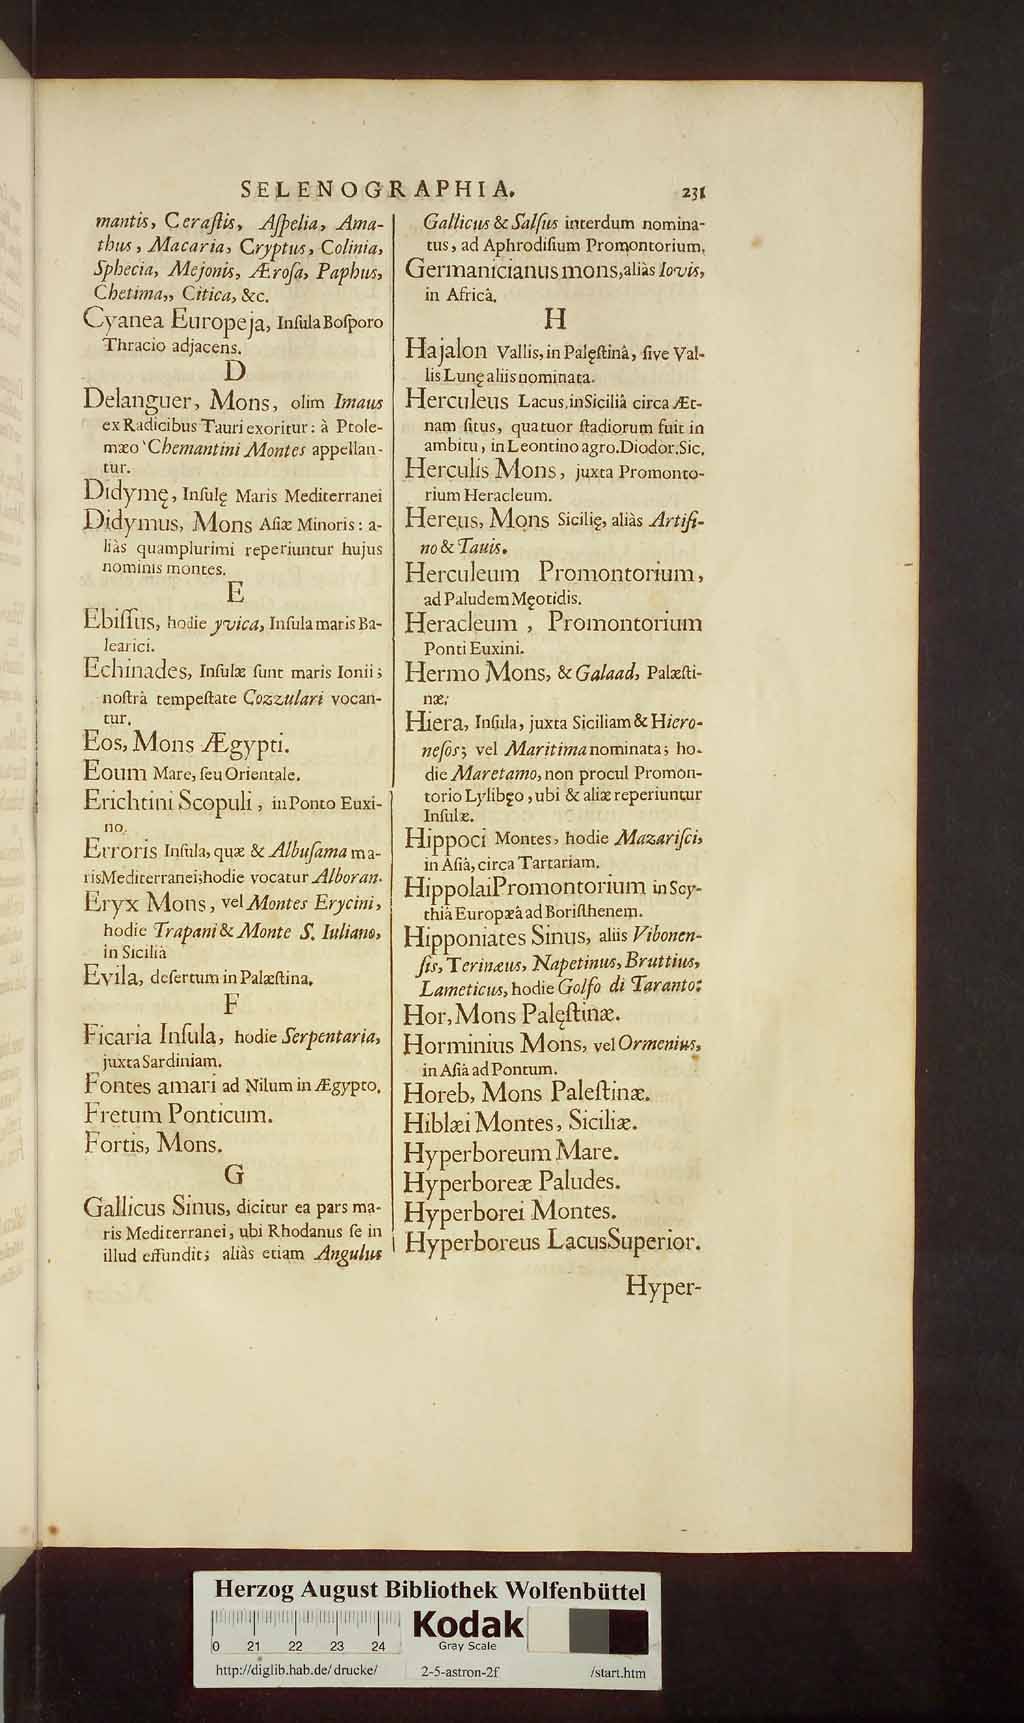 SELENOGRAPHIA. 231
mantis, Ceraſtis, Aſpelia, Ama-
thus, Macaria, Cryptus, Colinia,
Sphecia, Mejonis, Æroſa, Paphus,
Chetima,, Citica, &c.
Cyanea Europeja, Inſula Boſporo
Thracio adjacens.
D
Delanguer, Mons, olim Imaus
ex Radicibus Tauri exoritur: à Ptole-
mæo Chemantini Montes appellan-
tur.
Didymę, Inſulę Maris Mediterranei
Didymus, Mons Aſiæ Minoris: a-
liàs quamplurimi reperiuntur hujus
nominis montes.
E
Ebiſſus, hodie yvica, Inſula maris Ba-
learici.
Echinades, Inſulæ ſunt maris Ionii;
noſtrâ tempeſtate Cozzulari vocan-
tur.
Eos, Mons Ægypti.
Eoum Mare, ſeu Orientale.
Erichtini Scopuli, in Ponto Euxi-
no.
Erroris Inſula, quæ & Albuſama ma-
ris Mediterranei; hodie vocatur Alboran.
Eryx Mons, vel Montes Erycini,
hodie Trapani & Monte S. Iuliano,
in Siciliâ
Evila, deſertum in Palæſtina.
F
Ficaria Inſula, hodie Serpentaria,
juxta Sardiniam.
Fontes amari ad Nilum in Ægypto.
Fretum Ponticum.
Fortis, Mons.
G
Gallicus Sinus, dicitur ea pars ma-
ris Mediterranei, ubi Rhodanus ſe in
illud effundit; aliàs etiam Angulus
Gallicus & Salſus interdum nomina-
tus, ad Aphrodiſium Promontorium.
Germanicianus mons, aliàs Iovis,
in Africâ.
H
Hajalon Vallis, in Palęſtinâ, ſive Val-
lis Lunę aliis nominata.
Herculeus Lacus, in Siciliâ circa Æt-
nam ſitus, quatuor ſtadiorum fuit in
ambitu, in Leontino agro. Diodor. Sic.
Herculis Mons, juxta Promonto-
rium Heracleum.
Hereus, Mons Sicilię, aliàs Artiſi-
no & Tauis.
Herculeum Promontorium,
ad Paludem Męotidis.
Heracleum, Promontorium
Ponti Euxini.
Hermo Mons, & Galaad, Palæſti-
næ;
Hiera, Inſula, juxta Siciliam & Hiero-
neſos; vel Maritima nominata; ho-
die Maretamo, non procul Promon-
torio Lylibęo, ubi & aliæ reperiuntur
Inſulæ.
Hippoci Montes, hodie Mazariſci,
in Aſiâ, circa Tartariam.
Hippolai Promontorium in Scy-
thiâ Europæâ ad Boriſthenem.
Hipponiates Sinus, aliis Vibonen-
ſis, Terinæus, Napetinus, Bruttius,
Lameticus, hodie Golfo di Taranto:
Hor, Mons Palęſtinæ.
Horminius Mons, vel Ormenius,
in Aſiâ ad Pontum.
Horeb, Mons Paleſtinæ.
Hiblæi Montes, Siciliæ.
Hyperboreum Mare.
Hyperboreæ Paludes.
Hyperborei Montes.
Hyperboreus Lacus Superior.
Hyper-
Herzog August Bibliothek Wolfenbüttel
Kodak
0 21 22 23 24
Gray Scale
http://diglib.hab.de/drucke/ 2-5-astron-2f /start.htm